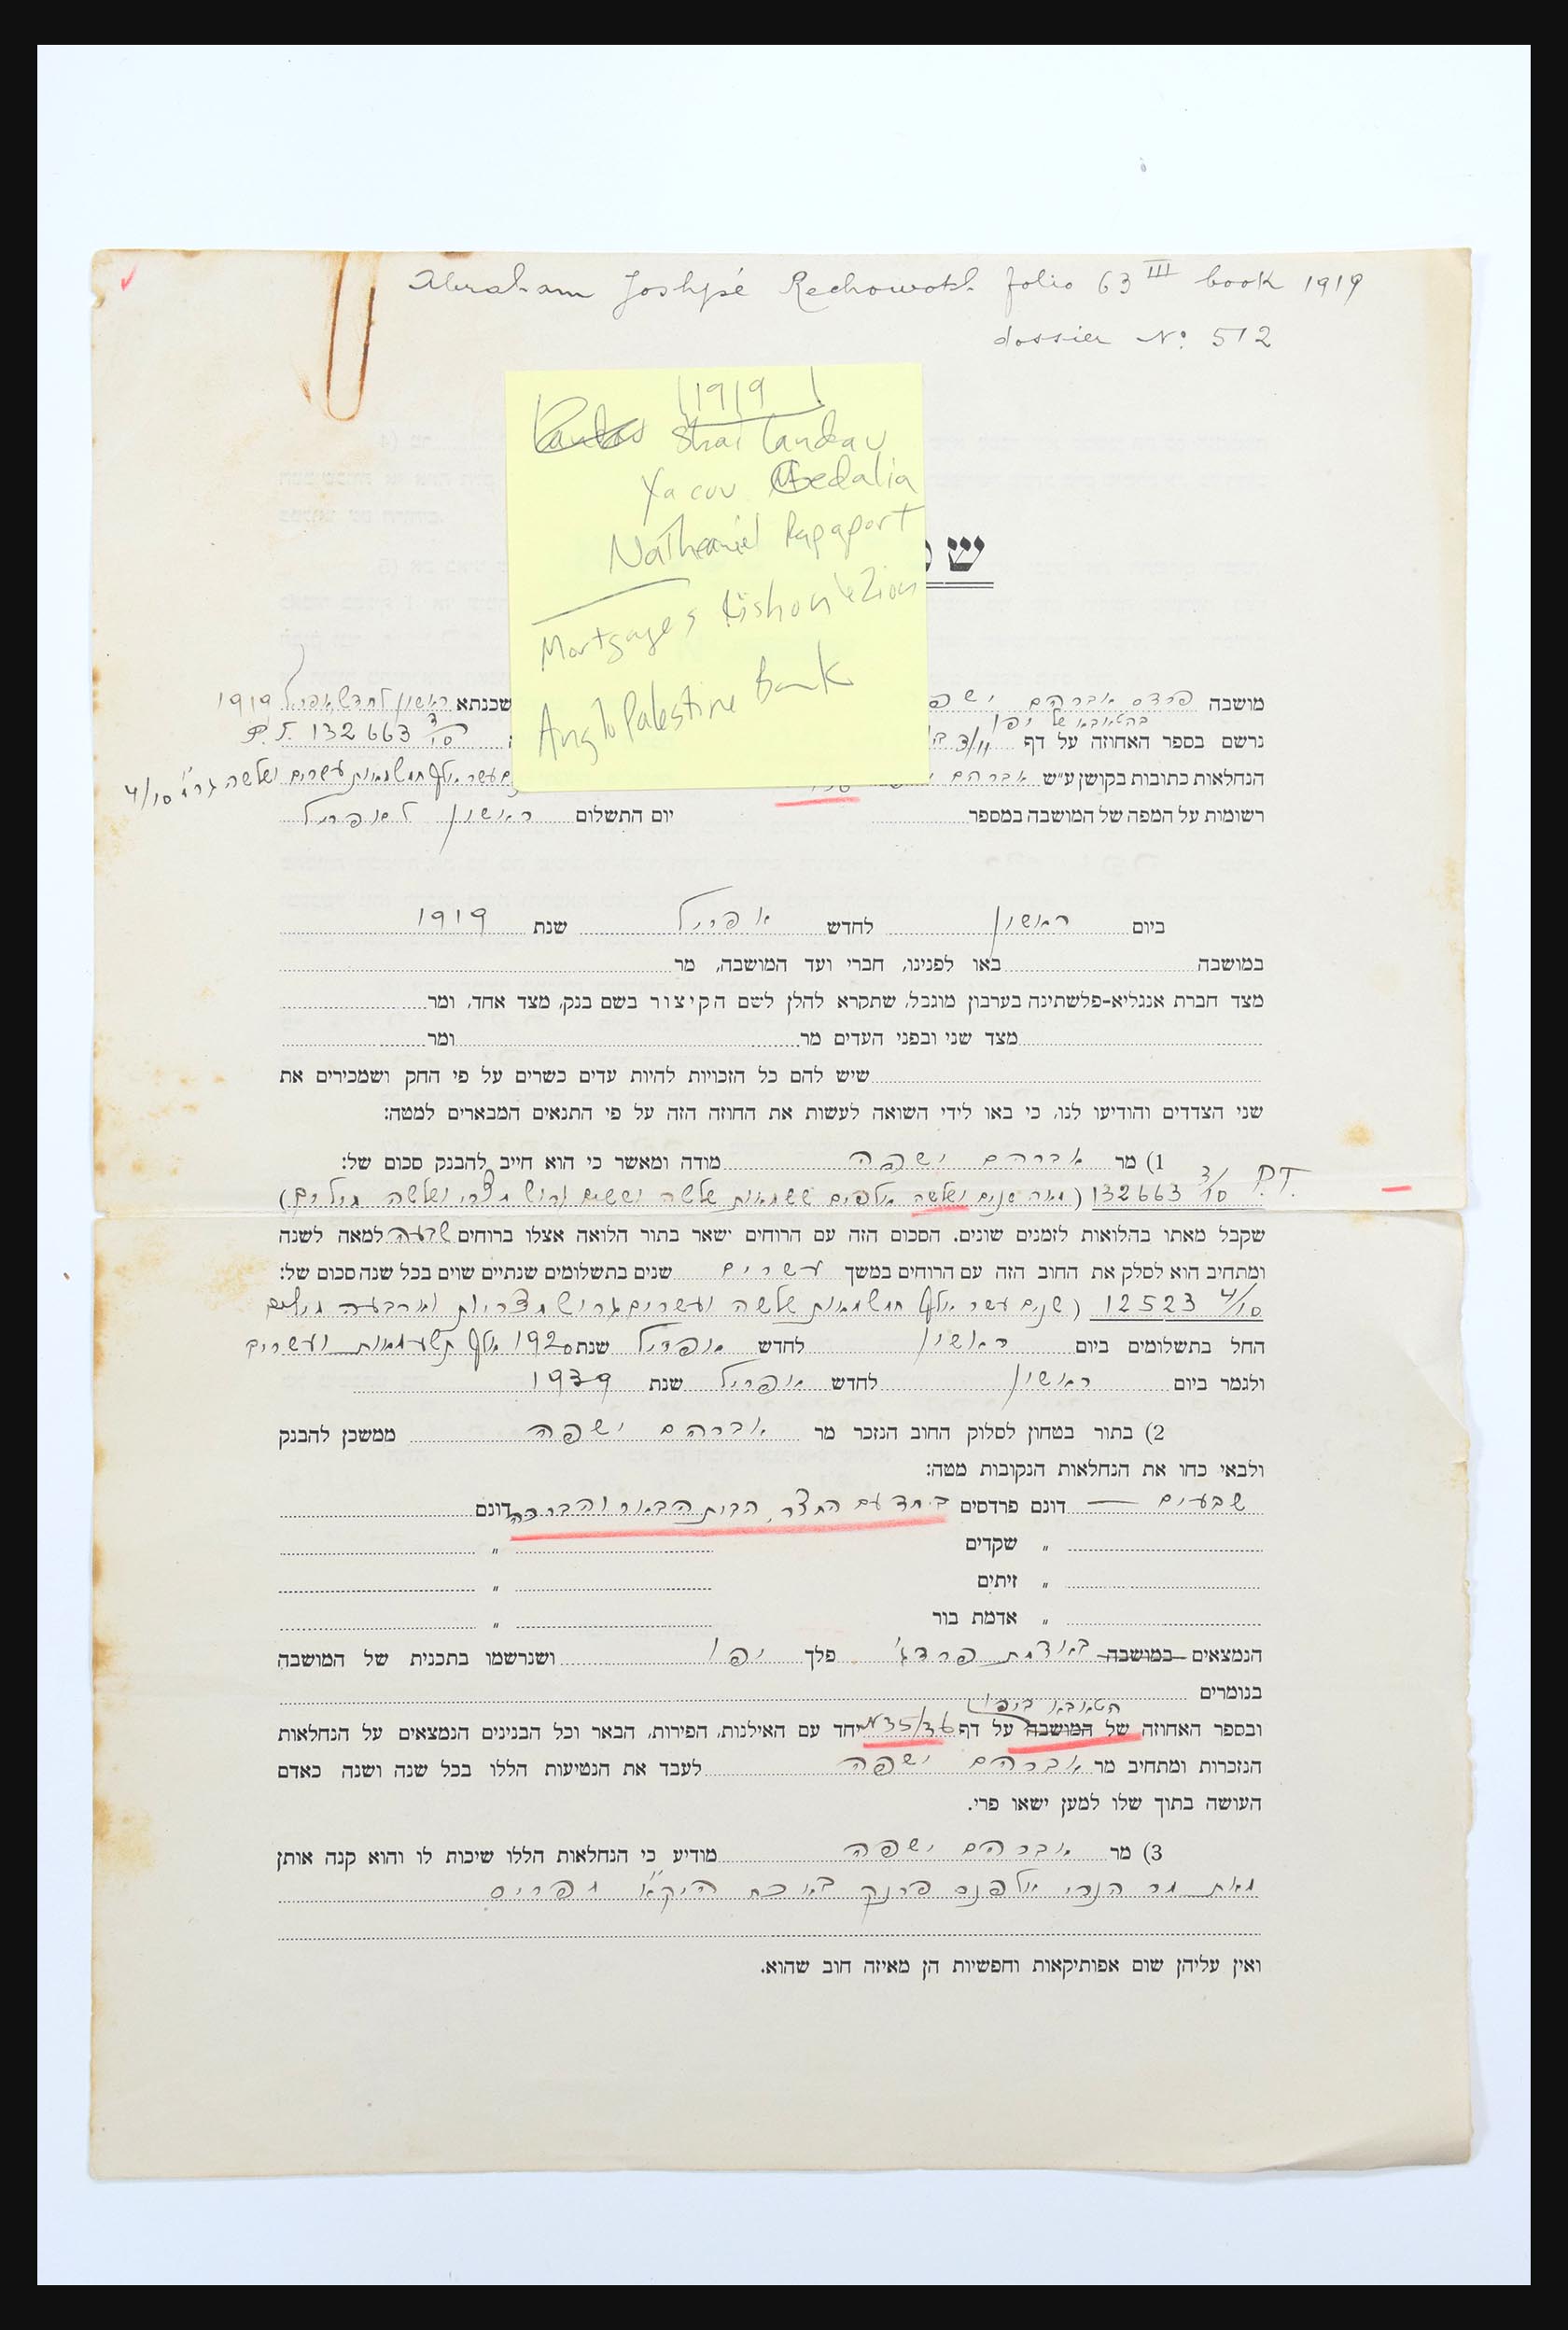 Abraham Joshpé Rechowoth folio 63 III book 1919
dossier No 512
1919
Shai Landau
Yacov Gedalia
Nathaniel Rapaport
Mortgages Rishon leZion
Anglo Palestine Bank
ש
מושבה פרדס אברהם ישפה
שכנתא ראשון לחדש אפריל 1919
בהטאבא של יפו
נרשם בספר האחוזה על דף 3/11
P.T. 132663 3/10
הנחלאות כתובות בקושן ע״ש אברהם
עשר אלף חמש מאות עשרים ושלשה גר״מ 4/10
רשומות על המפה של המושבה במספר
יום התשלום ראשון לאפריל
ביום ראשון לחדש אפריל שנת 1919
במושבה באו לפנינו, חברי ועד המושבה, מר
מצד חברת אנגליא-פלשתינה בערבון מוגבל, שתקרא להלן לשם הקיצור בשם בנק, מצד אחד, ומר
מצד שני ובפני העדים מר ומר
שיש להם כל הזכויות להיות עדים כשרים על פי החק ושמכירים את
שני הצדדים והודיעו לנו, כי באו לידי השואה לעשות את החוזה הזה על פי התנאים המבארים למטה:
1) מר אברהם ישפה מודה ומאשר כי הוא חייב להבנק סכום של:
P.T. 132663 3/10 (מאה שנים ושלשה אלפים ששמאות שלשה וששים גרוש מצרי ושלשה מילים)
שקבל מאתו בהלואות לזמנים שונים. הסכום הזה עם הרוחים ישאר בתור הלואה אצלו ברוחים שבעה למאה לשנה
ומתחיב הוא לסלק את החוב הזה עם הרוחים במשך עשרים שנים בתשלומים שנתיים שוים בכל שנה סכום של:
12523 4/10 (שנים עשר אלף חמש מאות שלשה ועשרים גרוש מצריות וארבעה מילים
החל בתשלומים ביום ראשון לחדש אפריל שנת 1920 אלף תשע מאות ועשרים
ולגמר ביום ראשון לחדש אפריל שנת 1939
2) בתור בטחון לסלוק החוב הנזכר מר אברהם ישפה ממשכן להבנק
ולבאי כחו את הנחלאות הנקובות מטה:
שבעים — דונם פרדסים ביחד עם החצר, הבית הבאר והברכה דונם
" שקדים "
" זיתים "
" אדמת בור "
הנמצאים במושבה באדמת פרדג' פלך יפו ושנרשמו בתכנית של המושבה
בנומרים
הטאבא ביפו
ובספר האחוזה של המושבה על דף 35/36 יחד עם האילנות, הפירות, הבאר וכל הבנינים הנמצאים על הנחלאות
הנזכרות ומתחיב מר אברהם ישפה לעבד את הנטיעות הללו בכל שנה ושנה כאדם
העושה בתוך שלו למען ישאו פרי.
3) מר אברהם ישפה מודיע כי הנחלאות הללו שיכות לו והוא קנה אותן
מאת מר הנרי אלפנס פרנק בא כח היק״א מפריס
ואין עליהן שום אפותיקאות וחפשיות הן מאיזה חוב שהוא.